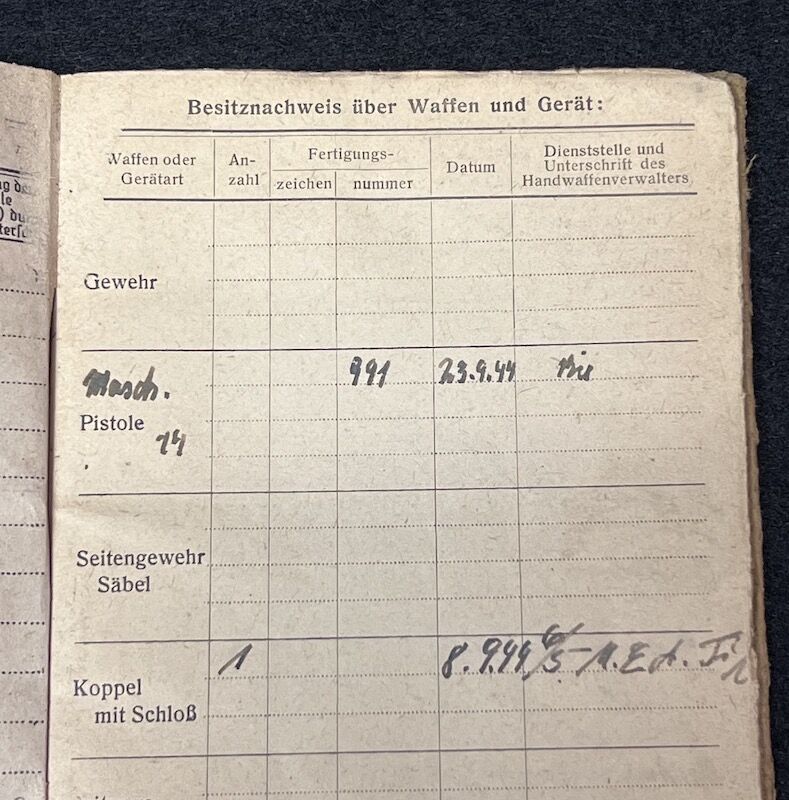 Besitznachweis über Waffen und Gerät:
Waffen oder Gerätart
An-zahl
Fertigungs-
zeichen
nummer
Datum
Dienststelle und Unterschrift des Handwaffenverwalters
Gewehr
Masch. 991 23.9.44
Pistole
Seitengewehr
Säbel
1 8.9.44
Koppel
mit Schloß